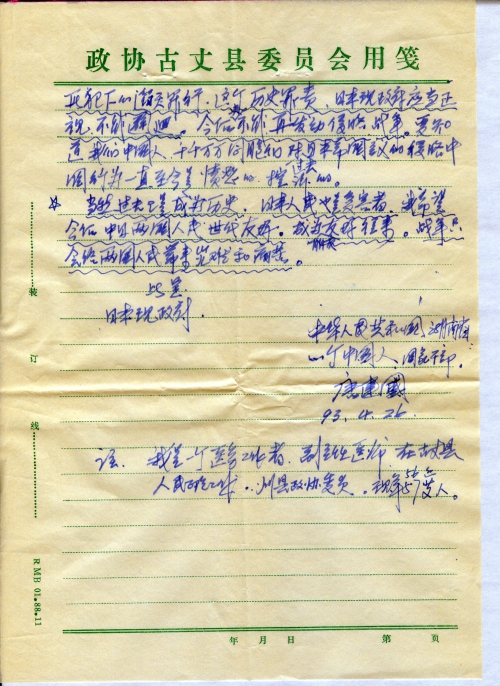 政协古丈县委员会用笺
此犯下的滔天罪行，这个历史罪责，日本现政府应当正
视，不能回避。今后不能再发动侵略战争。要知
道我们中国人，千千万万同胞们对日本帝国主义的侵略中
国行为一直至今是愤怒的、控诉的。
当然过去已是成为历史，日本人民也是受害者，我希望
今后中日两国人民世代友好。友好往来。战争只
会给两国人民带来灾难和痛苦。
此呈
日本现政府
中华人民共和国湖南省
一个中国人 国家干部。
唐建国
93.4.26
注：我是一个医务工作者、副主任医师 在古丈县
人民医院工作，州县政协委员，现年57岁人。
装
订
线
RMB 01.88.11
年 月 日 第 页